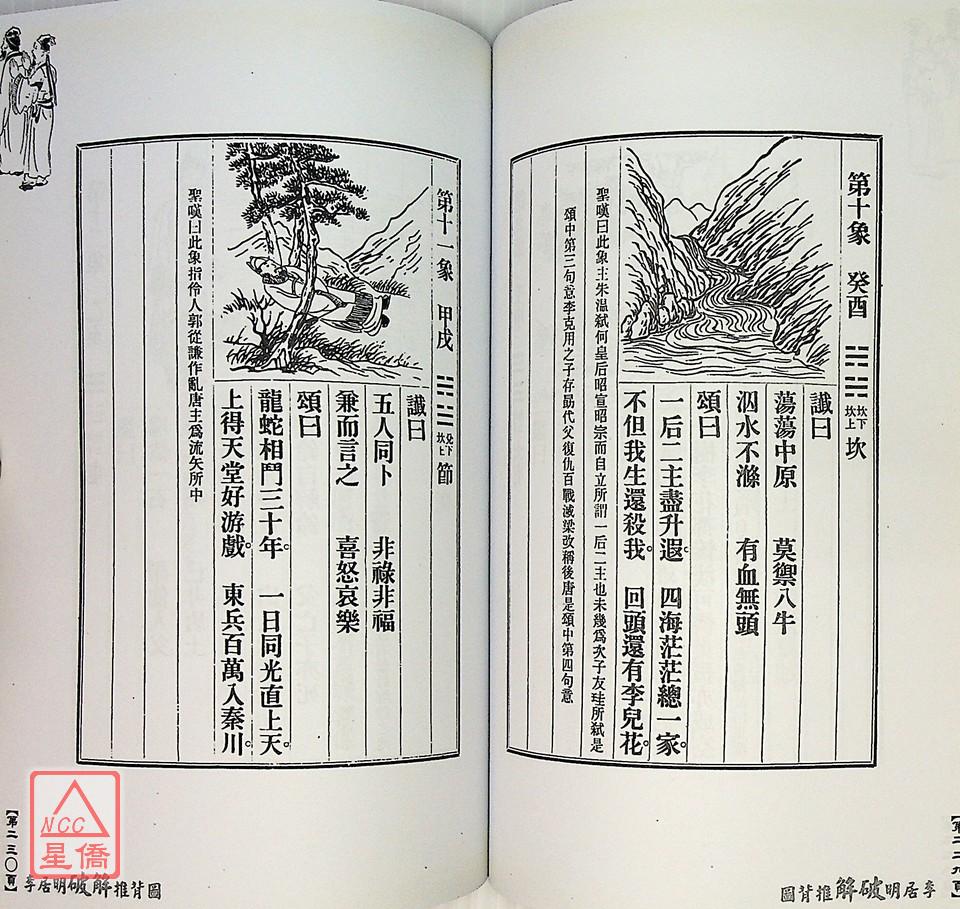 第十象 癸酉 坎下 坎上 坎
讖曰
蕩蕩中原 莫禦八牛
泅水不滌 有血無頭
頌曰
一后二主盡升遐。 四海茫茫總一家。
不但我生還殺我。 回頭還有李兒花。
聖嘆曰此象主朱溫弒何皇后昭宣昭宗而自立所謂一后二主也未幾為次子友珪所弒是
頌中第三句意李克用之子存勗代父復仇百戰滅梁改稱後唐是頌中第四句意
李居明破解推背圖
第十一象 甲戌 兌下 坎上 節
讖曰
五人同卜 非祿非福
兼而言之 喜怒哀樂
頌曰
龍蛇相鬥三十年。 一日同光直上天。
上得天堂好游戲。 東兵百萬入秦川。
聖嘆曰此象指伶人郭從謙作亂唐主為流矢所中
李居明破解推背圖
【第二三〇頁】
NCC
星僑